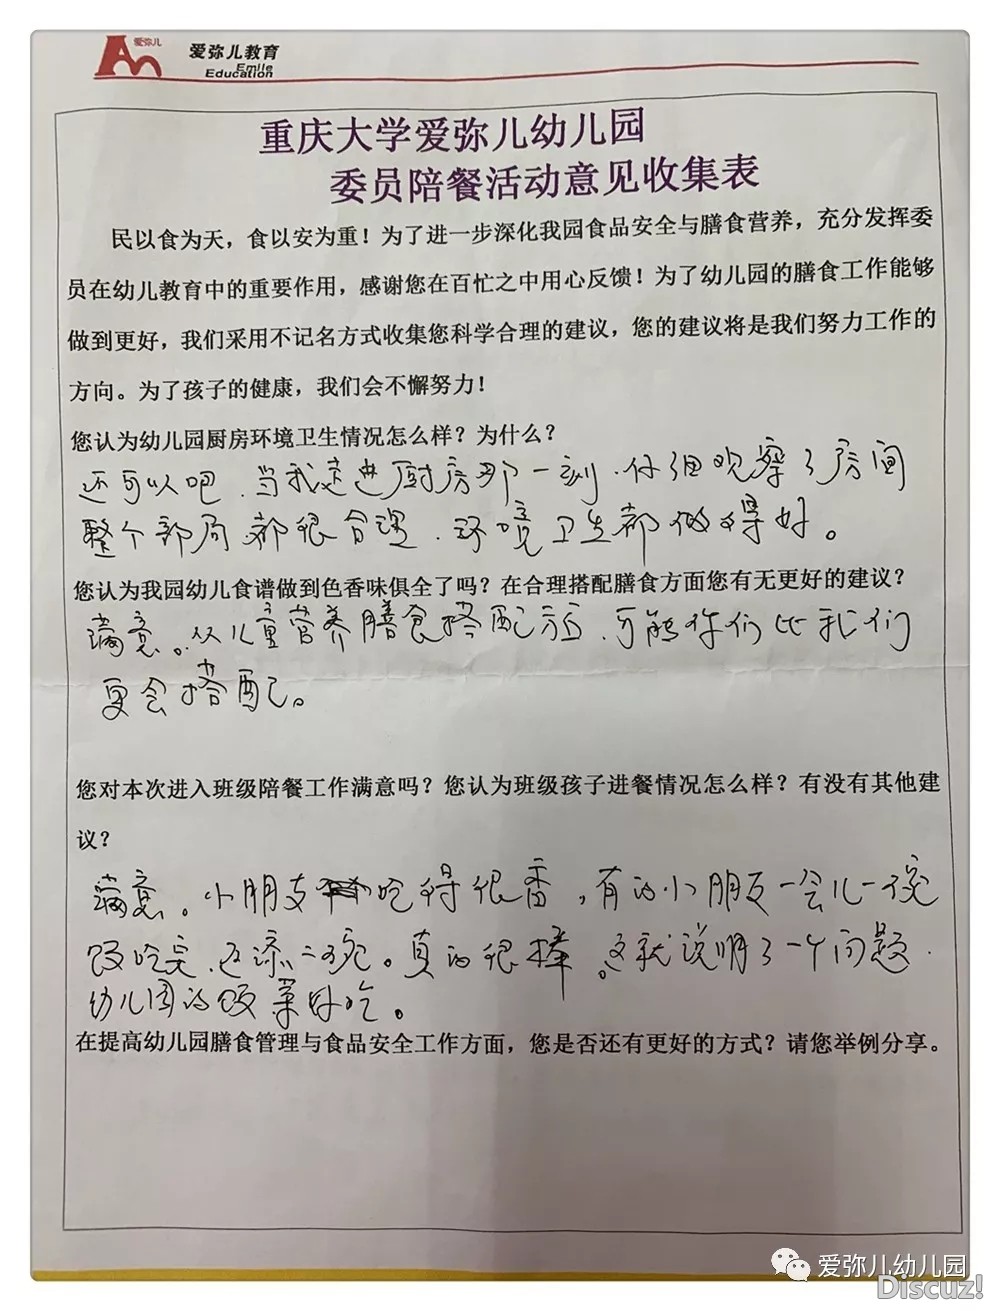 爱弥儿
爱弥儿教育
Emile
Education
重庆大学爱弥儿幼儿园
委员陪餐活动意见收集表
民以食为天，食以安为重！为了进一步深化我园食品安全与膳食营养，充分发挥委
员在幼儿教育中的重要作用，感谢您在百忙之中用心反馈！为了幼儿园的膳食工作能够
做到更好，我们采用不记名方式收集您科学合理的建议，您的建议将是我们努力工作的
方向。为了孩子的健康，我们会不懈努力！
您认为幼儿园厨房环境卫生情况怎么样？为什么？
还可以吧，当我走进厨房那一刻，仔细观察了房间
整个部局都很合理，环境卫生都做得好。
您认为我园幼儿食谱做到色香味俱全了吗？在合理搭配膳食方面您有无更好的建议？
满意。从儿童营养膳食搭配方面，可能你们比我们
更会搭配。
您对本次进入班级陪餐工作满意吗？您认为班级孩子进餐情况怎么样？有没有其他建
议？
满意。小朋友吃得很香，有的小朋友一会儿一碗
饭吃完，还添二碗。真的很棒。这就说明了一个问题，
幼儿园的饭菜好吃。
在提高幼儿园膳食管理与食品安全工作方面，您是否还有更好的方式？请您举例分享。
爱弥儿幼儿园
Discuz!